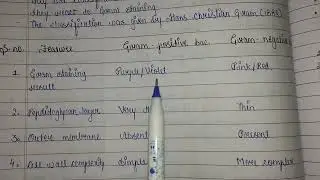 they want to Gram staining
The classification was given by Hans Christian Gram (188
S.no. Feature Gram-positive bac. Gram-negative
1 Gram staining Purple/Violet Pink/Red
result
2. Peptidoglycan layer Very Thin
3. Outer membrane Absent Present
4. Cell wall complexity Simple More complex